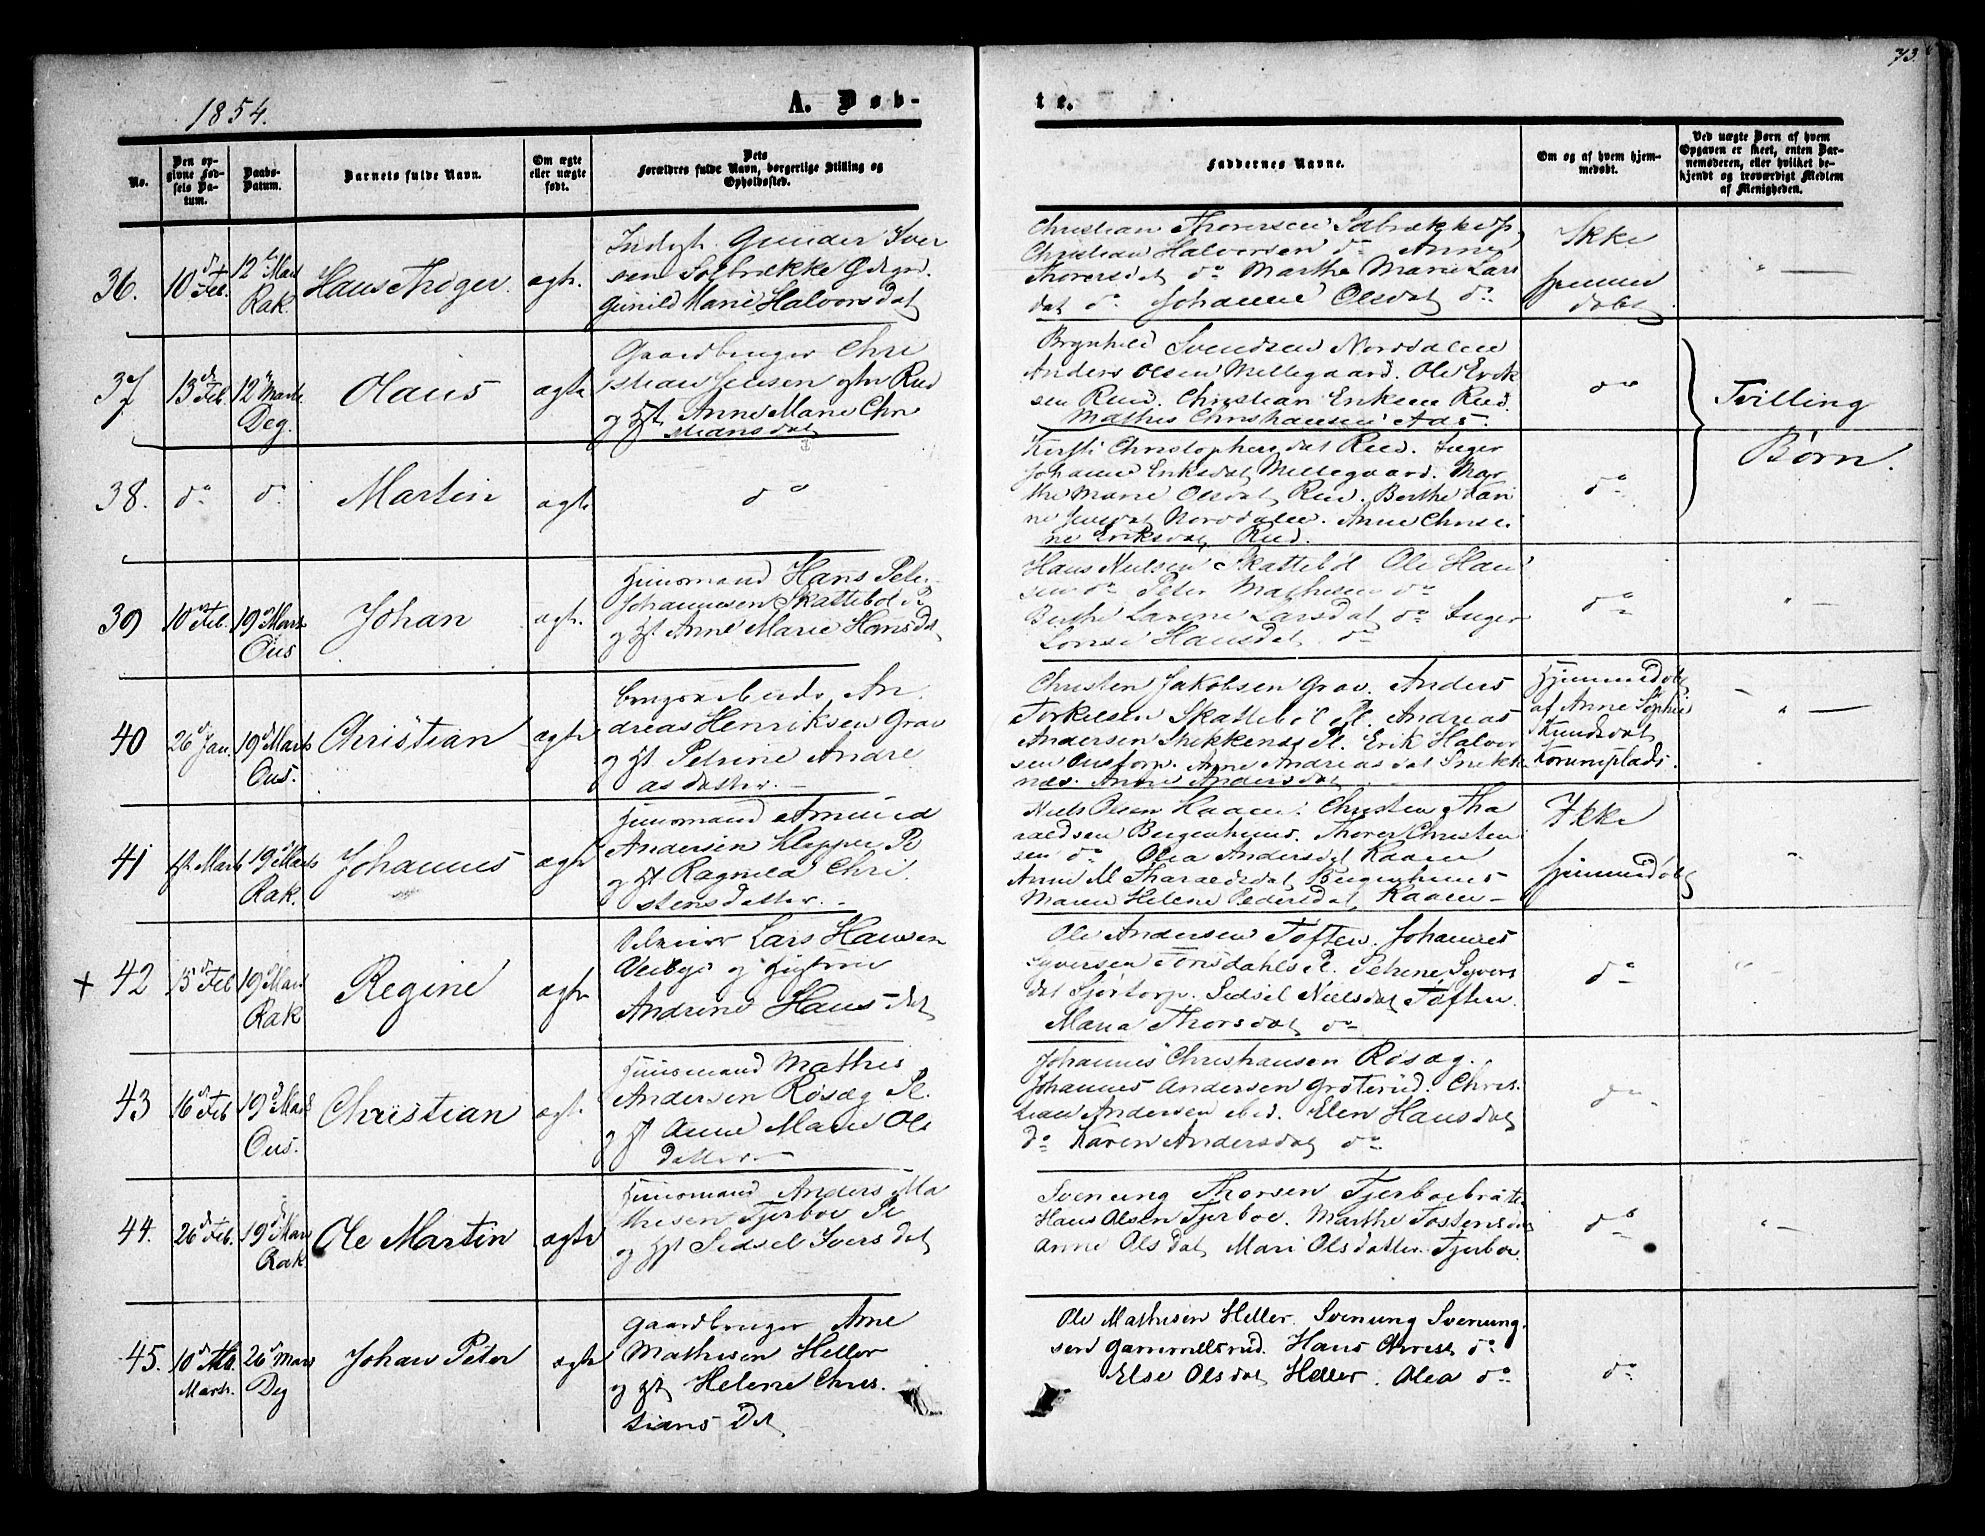 73.
1854.
A. Døb-
te.
No.
Den op-
givne Fød-
sels Da-
tum.
Daabs-
Datum.
Barnets fulde Navn.
Om ægte
eller uægte
født.
Dets
Forældres fulde Navn, borgerlige Stilling og
Opholdssted.
Faddernes Navne.
Om og af hvem hjem-
medøbt.
Ved uægte Børn af hvem
Opgaven er skeet, enten Bar-
nemoderen, eller hvilket be-
kjendt og troværdigt Medlem
af Menigheden.
36.
10 Feb.
12 Mar
Rak.
Hans Thoger.
ægte.
Gunder Iver
sen Solbrække Ødegrd.
Gunild Marie Halvorsdat
Christian Thoresen Solbrække
Christian Halversen do Anne
Thorersdat do Marthe Marie Lars
dat do Johanne Olsdat do
Ikke
hjemme
døbt
37
13 Feb.
12 Marts
Deg.
Olaus
ægte
Gaardbruger Chri
stian Jensen Rud
og Hst Anne Marie Chri
stiansdat
Brynhild Svendsen Norddalen
Anders Olsen Millegaard. Ole Erik
sen Rud. Christian Eriksen Rud.
Mathis Christiansen Aas.
do
Tvilling
Børn.
38.
do
do
Martin
ægte
do
Kirsti Christophersdat Rud. Inger
Johanne Eriksdat Millegaard. Mar
the Marie Olsdat Rud. Berthe Kari
ne Jensdat Norddalen. Anne Christi
ne Eriksdat Rud.
do
39
10 Feb.
19 Marts
Ous
Johan
ægte.
Huusmand Hans Peter
Johannesen Skattebøl Pl
og Hst Anne Marie Hansdat
Hans Nielsen Skattebøl Ole Han
sen do Peter Mathisen do
Berthe Larine Larsdat do Inger
Lovise Hansdat do
do
40
26 Jan.
19 Marts
Ous.
Christian
ægte
Brugsarbeider An
dreas Henriksen Grav
og Hst Petrine Andre
asdatter.
Christen Jakobsen Grav. Anders
Torkelsen Skattebøl Pl. Andreas
Andersen Snikkenæs Pl. Erik Halvor
sen Oustorp. Anne Andreasdat Snikk
næs. Anne Andersdat
Hjemmedøbt
af Anne Sophie
Knudsdat
41
1st Marts
19 Marts
Rak.
Johannes
ægte
Huusmand Amund
Andersen Kleppen Pl
og Hst Ragnild Chri
stensdatter.
Niels Olsen Kaaen. Christen Tha
raldsen Bergenhuus. Thorer Christen
sen do Olea Andersdat Kaaen
Anne M Tharaldsdat Bergenhuus
Maren Helene Pedersdat Kaaen
Ikke
hjemmedøbt
+ 42
15 Feb
19 Mar
Rak
Regine
ægte
Lars Hansen
Veiby og
Andrine Hansdat
Ole Andersen Toften. Johannes
Syversen Pl. Petrine Syvers
dat Sjørtorp. Sidsel Nielsdat Toften.
Maria Thorsdat do
do
43
16 Feb
19 Marts
Ous.
Christian
ægte
Huusmand Mathis
Andersen Røsæg Pl.
og Hst Anne Marie Ols
datter
Johannes Christiansen Røsæg.
Johannes Andersen Grøterud. Chris
tian Andersen ibid. Elen Hansdat
do Karen Andersdat do
do
44.
26 Feb.
19 Mar
Rak
Ole Martin
ægte
Huusmand Anders Ma
thisen Tjerboe Pl
og Hst Sidsel Iversdat
Svenung Thorsen Tjerboebråte
Hans Olsen Tjerboe. Marthe Tostensdat
Anne Olsdat Mari Olsdatter Tjerboe
do
45.
10
Marts.
26 Mars
Deg
Johan Peter
ægte
Gaardbruger Arne
Mathisen Heller
og Hst Helene Chris
tians Dt
Ole Mathisen Heller. Svenung Svenung
sen Gammelsrud. Hans Christ do
Else Olsdat Heller. Olea do
do